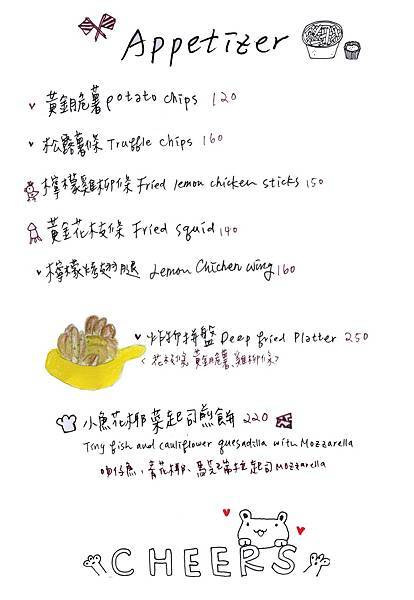 Appetizer
黃金脆薯 potato chips 120
松露薯條 Truffle chips 160
檸檬雞柳條 Fried lemon chicken sticks 150
黃金花枝條 Fried squid 140
檸檬烤翅腿 Lemon Chicken wing 160
炸物拼盤 Deep fried Platter 250
<花枝條、黃金脆薯、雞柳條>
小魚花椰菜起司煎餅 220
Tiny fish and cauliflower quesadilla with Mozzarella
吻仔魚、青花椰、馬茲瑞拉起司 Mozzarella
CHEERS